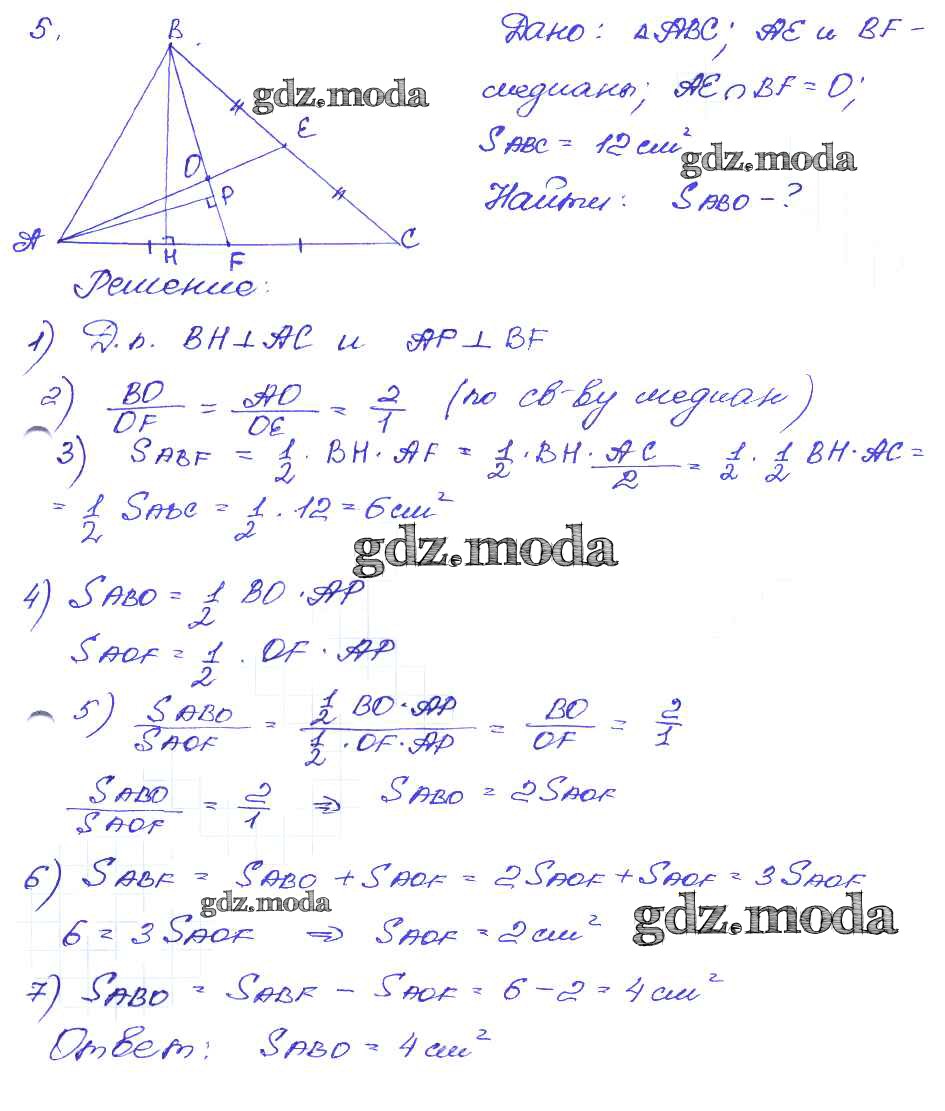 5.
Дано: △ABC; AE и BF -
медианы; AE∩BF = O;
S ABC = 12 см²
Найти: S ABO - ?
B
E
O
P
A
H
F
C
gdz.moda
gdz.moda
Решение:
1) Д.п. BH⊥AC и AP⊥BF
2) BO/OF = AO/OE = 2/1 (по св-ву медиан)
3) S ABF = 1/2 · BH · AF = 1/2 · BH · AC/2 = 1/2 · 1/2 BH · AC =
= 1/2 S ABC = 1/2 · 12 = 6 см²
gdz.moda
4) S ABO = 1/2 BO · AP
S AOF = 1/2 · OF · AP
5) S ABO/S AOF = 1/2 BO · AP / 1/2 · OF · AP = BO/OF = 2/1
S ABO/S AOF = 2/1 ⇒ S ABO = 2 S AOF
6) S ABF = S ABO + S AOF = 2 S AOF + S AOF = 3 S AOF
gdz.moda
gdz.moda
6 = 3 S AOF ⇒ S AOF = 2 см²
7) S ABO = S ABF - S AOF = 6 - 2 = 4 см²
Ответ: S ABO = 4 см²